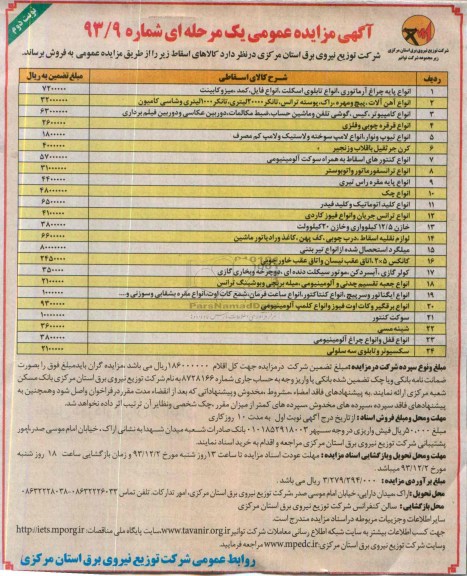 نوبت دوم
آگهی مزایده عمومی یک مرحله ای شماره ۹۳/۹
شرکت توزیع نیروی برق استان مرکزی درنظر دارد کالاهای اسقاط زیر را از طریق مزایده عمومی به فروش برساند.
ردیف شرح کالای اسقاطی مبلغ تضمین به ریال
۱ انواع پایه چراغ آرماتوری، انواع تابلوی اسکلت، انواع فایل، کمد، میز و کابینت ۷۲۰۰۰۰۰
۲ انواع آهن آلات، پیچ ومهره، یراق، پوسته ترانس، تانکر ۲۰۰۰۰ لیتری، تانکر ۱۰۰۰ لیتری وشاسی کامیون ۳۲۰۰۰۰۰۰
۳ انواع کامپیوتر، کیس، گوشی تلفن وماشین حساب، ضبط مکالمات، دوربین عکاسی ودوربین فیلم برداری ۶۳۰۰۰۰
۴ انواع قرقره چوبی وفلزی ۲۶۰۰۰۰۰
۵ انواع تیوپ ونوار، انواع لامپ سوخته ولاستیک ولامپ کم مصرف ۱۸۰۰۰۰
۶ کرن جرثقیل باقلاب وزنجیر ۴۰۰۰۰۰
۷ انواع کنتور های اسقاط به همراه سوکت آلومینیومی ۵۷۰۰۰۰۰
۸ انواع ترانسفورماتور واتوبوستر ۳۱۰۰۰۰۰۰
۹ انواع پایه مقره راس تیری ۴۴۰۰۰۰۰
۱۰ انواع جک ۴۸۰۰۰۰۰
۱۱ انواع کلید اتوماتیک وکلید فیدر ۶۵۰۰۰۰۰
۱۲ انواع ترانس جریان وانواع فیوز کاردی ۴۱۰۰۰۰۰
۱۳ خازن ۱۲/۵ کیلوواری وخازن ۲۰ کیلوولت ۳۸۰۰۰۰
۱۴ لوازم نقلیه اسقاط، درب چوبی، کف پهن، کاغذ ورادیاتور ماشین ۶۶۰۰۰۰
۱۵ میلگرد استحصال شده از انواع تیر بتنی ۸۰۰۰۰۰۰
۱۶ کانکس ۵×۲، اتاق عقب نیسان واتاق عقب خاور چوبی ۲۴۵۰۰۰۰
۱۷ کولر گازی، آبسردکن، موتور سیکلت دنده ای، دوچرخه وبخاری گازی ۳۵۰۰۰۰
۱۸ انواع جعبه تقسیم چدنی و آلومینیومی، میله برنجی وبوشینگ ترانس ۲۱۰۰۰۰۰
۱۹ انواع ایگناتور وسرپیچ، انواع کنتاکتور، انواع ساعت فرمان، شمع کات اوت، انواع مقره بشقابی وسوزنی و...
۲۰ انواع برقگیر وکات اوت فیوز وانواع کلمپ آلومینیومی ۹۳۰۰۰۰۰
۲۱ سوکت کنتور
۲۲ شینه مسی ۳۶۰۰۰۰۰
۲۳ انواع قفل وانواع چراغ آلومینیومی ۳۸۰۰۰۰۰
۲۴ سکسیونر وتابلوی سه سلولی ۲۱۰۰۰۰۰
مبلغ ونوع سپرده شرکت در مزایده: مبلغ تضمین شرکت درمزایده جهت کل اقلام ۱۸۶۰۰۰۰۰۰ ریال می باشد، مزایده گران بایدمبلغ فوق را بصورت
ضمانت نامه بانکی ویا چک تضمین شده بانکی یا واریز وجه به حساب جاری شماره ۸۷۳۸۱۶۶ به نام شرکت توزیع نیروی برق استان مرکزی بانک مسکن
شعبه مرکزی ارائه نمایند. به پیشنهادهای فاقد امضاء، مشروط، مخدوش وپیشنهاداتی که بعد از انقضاء مدت مقرردرفراخوان واصل شود وهمچنین به
پیشنهادهای فاقد سپرده، سپرده های مخدوش، سپرده های کمتر از میزان مقرر، چک شخصی ونظایر آن ترتیب اثر داده نخواهد شد.
مهلت ومحل ومبلغ فروش اسناد: از تاریخ درج آگهی نوبت اول به مدت ۱۰ روز کاری
مبلغ ۵۰,۰۰۰ ریال فیش واریزی در وجه سپهر ۰۱۰۱۸۵۲۹۱۸۰۰۳ بانک صادرات شعبه میدان شهدا به نشانی اراک، خیابان امام موسی صدر، امور
پشتیبانی شرکت توزیع نیروی برق استان مرکزی مراجعه و اقدام به خرید اسناد نمایند.
مهلت ومحل تحویل وبازگشایی اسناد مزایده: مهلت عودت اسناد مزایده تا ساعت ۱۳ روز شنبه مورخ ۹۳/۱۲/۲ و زمان بازگشایی ساعت ۱۸ روز شنبه
مورخ ۹۳/۱۲/۲ میباشد.
مبلغ برآوردی مزایده: ۳/۲۷۹/۲۹۴/۰۰۰ ریال می باشد.
محل تحویل: اراک میدان دارایی، خیابان امام موسی صدر شرکت توزیع نیروی برق استان مرکزی، امور تدارکات. تلفن تماس
محل بازگشایی: سالن کنفرانس شرکت توزیع نیروی برق استان مرکزی
سایر اطلاعات وجزییات مربوطه دراسناد مزایده مندرج است.
جهت کسب اطلاعات بیشتر به سایت شبکه اطلاع رسانی معاملات شرکت توانیر www.tavanir.org.ir سایت پایگاه ملی مناقصات: http://iets.mporg.ir
وسایت شرکت توزیع نیروی برق استان مرکزی: www.mpedc.ir مراجعه فرمایید.
روابط عمومی شرکت توزیع نیروی برق استان مرکزی